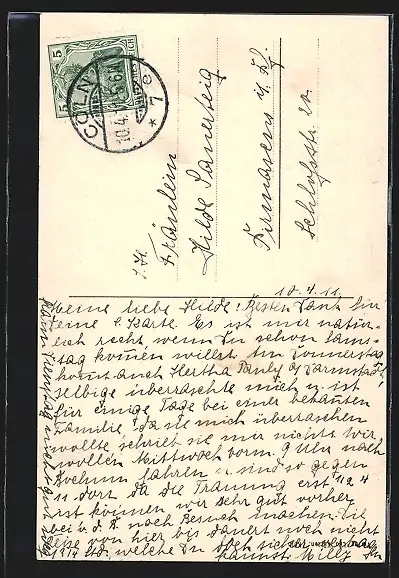 CÖLN
10.4.11
* 7 e
5
I. H.
Fräulein
Hilde
Pirmasens i/ Pf.
Schloßstr.
10.4.11.
Meine liebe Hilde! Besten Dank für
Deine l. Karte. Es ist mir natür-
lich recht, wenn Du schon Sams-
tag kommen willst. Am Donnerstag
kommt auch Hertha Pauly a/ Darmstadt,
selbige überraschte mich u. ist
für einige Tage bei einer bekannten
Familie, da sie mich überraschen
wollte, schrieb sie mir nichts. Wir
wollen Mittwoch vorm. 9 Uhr nach
Bochum fahren u. sind so gegen
11 dort, da die Trauung erst
ist, können wir sehr gut vorher
bei nach Besuch machen. Die
Reise von hier bis dauert noch nicht
Std, welche Du
kannst. Milly